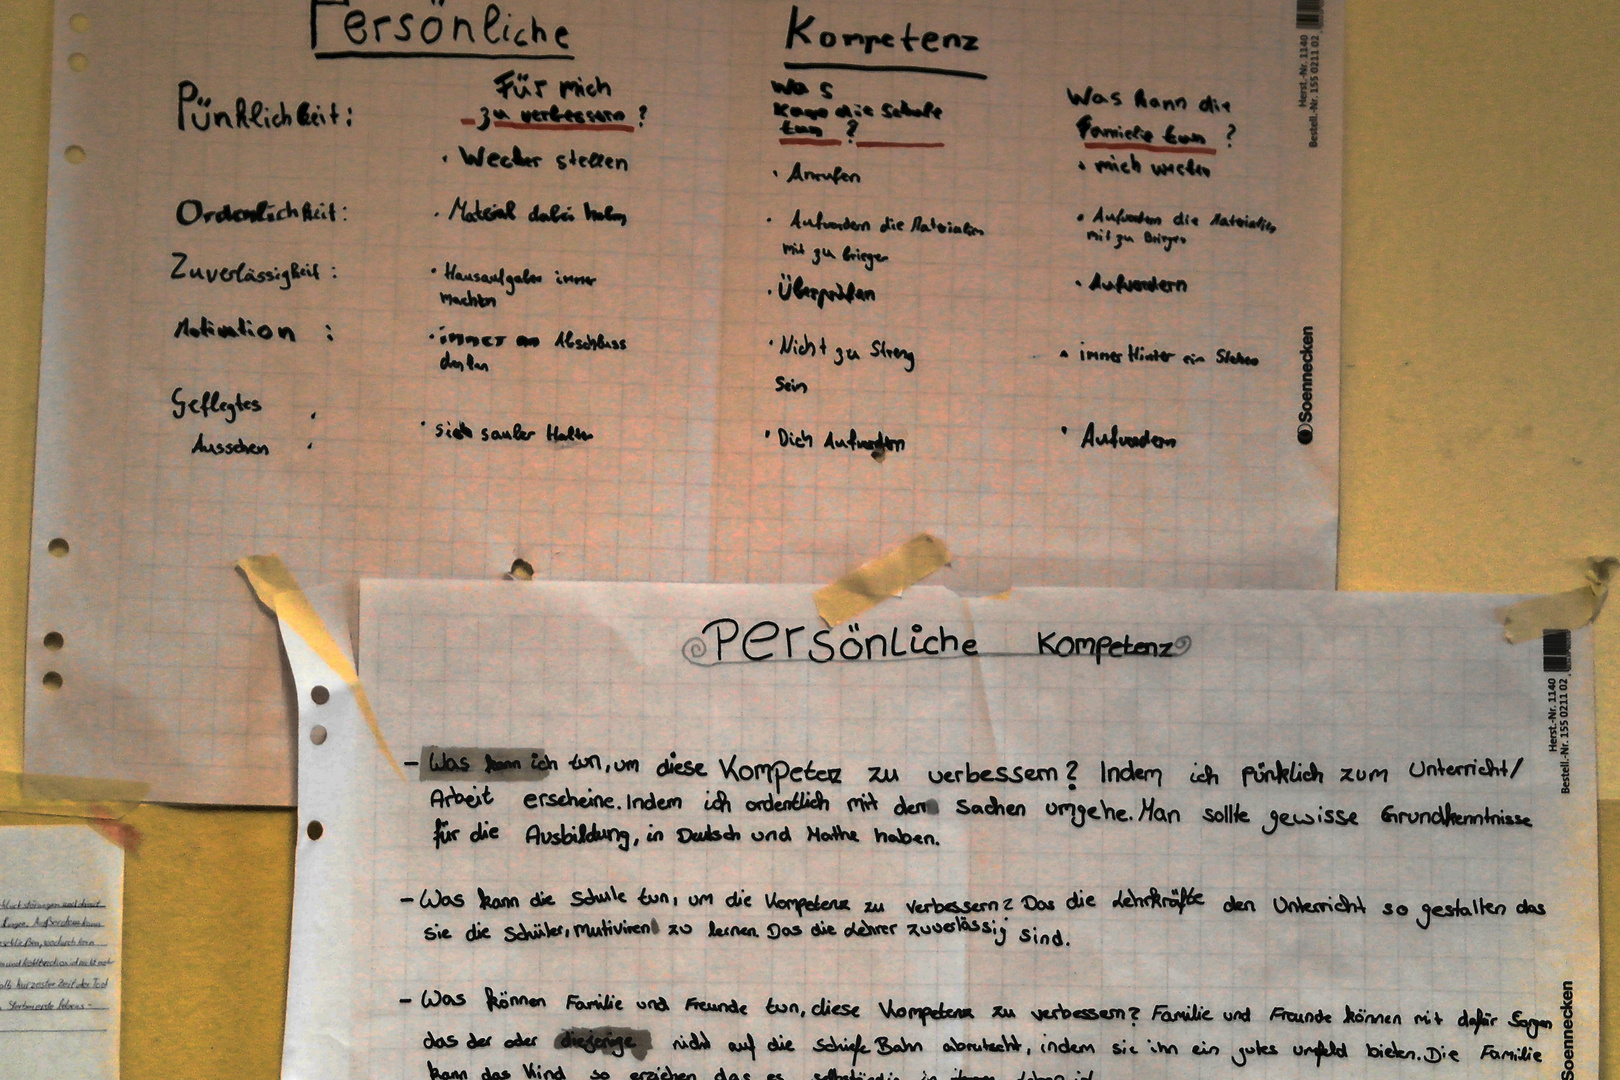 Persönliche Kompetenz
Für mich
zu verbessern?
Was
kann die Schule
tun?
Was kann die
Familie tun?
Pünklichkeit:
· Wecker stellen
· Anrufen
· mich wecken
Ordentlichkeit:
· Material dabei haben
· Aufvordern die Materialien
mit zu bringen
· Aufvordern die Materialien
mit zu bringen
Zuverlässigkeit:
· Hausaufgaben immer
machen
· Überprüfen
· Aufvordern
Motivation :
· immer an Abschluss
· Nicht zu Streng
Sein
· immer Hinter ein Stehen
Geflegtes
Aussehen :
· sich sauber Halten
· Dich Aufvordern
· Aufvordern
Herst.-Nr. 1140
Bestell.-Nr. 155 0211 02
Soennecken
Persönliche Kompetenz
– Was kann ich tun, um diese Kompetenz zu verbessern? Indem ich pünklich zum Unterricht/
Arbeit erscheine. Indem ich ordentlich mit den Sachen umgehe. Man sollte gewisse Grundkenntnisse
für die Ausbildung, in Deutsch und Mathe haben.
– Was kann die Schule tun, um die Kompetenz zu verbessern? Das die Lehrkräfte den Unterricht so gestalten das
sie die Schüler, mutiviren zu lernen. Das die Lehrer zuverlässig sind.
– Was können Familie und Freunde tun, diese Kompetenz zu verbessern? Familie und Freunde können mit dafür Sorgen
das der oder diejenige nicht auf die schiefe Bahn abrutscht, indem sie ihn ein gutes umfeld bieten. Die Familie
kann das Kind so erziehen das es selbständig in
Herst.-Nr. 1140
Bestell.-Nr. 155 0211 02
Soennecken